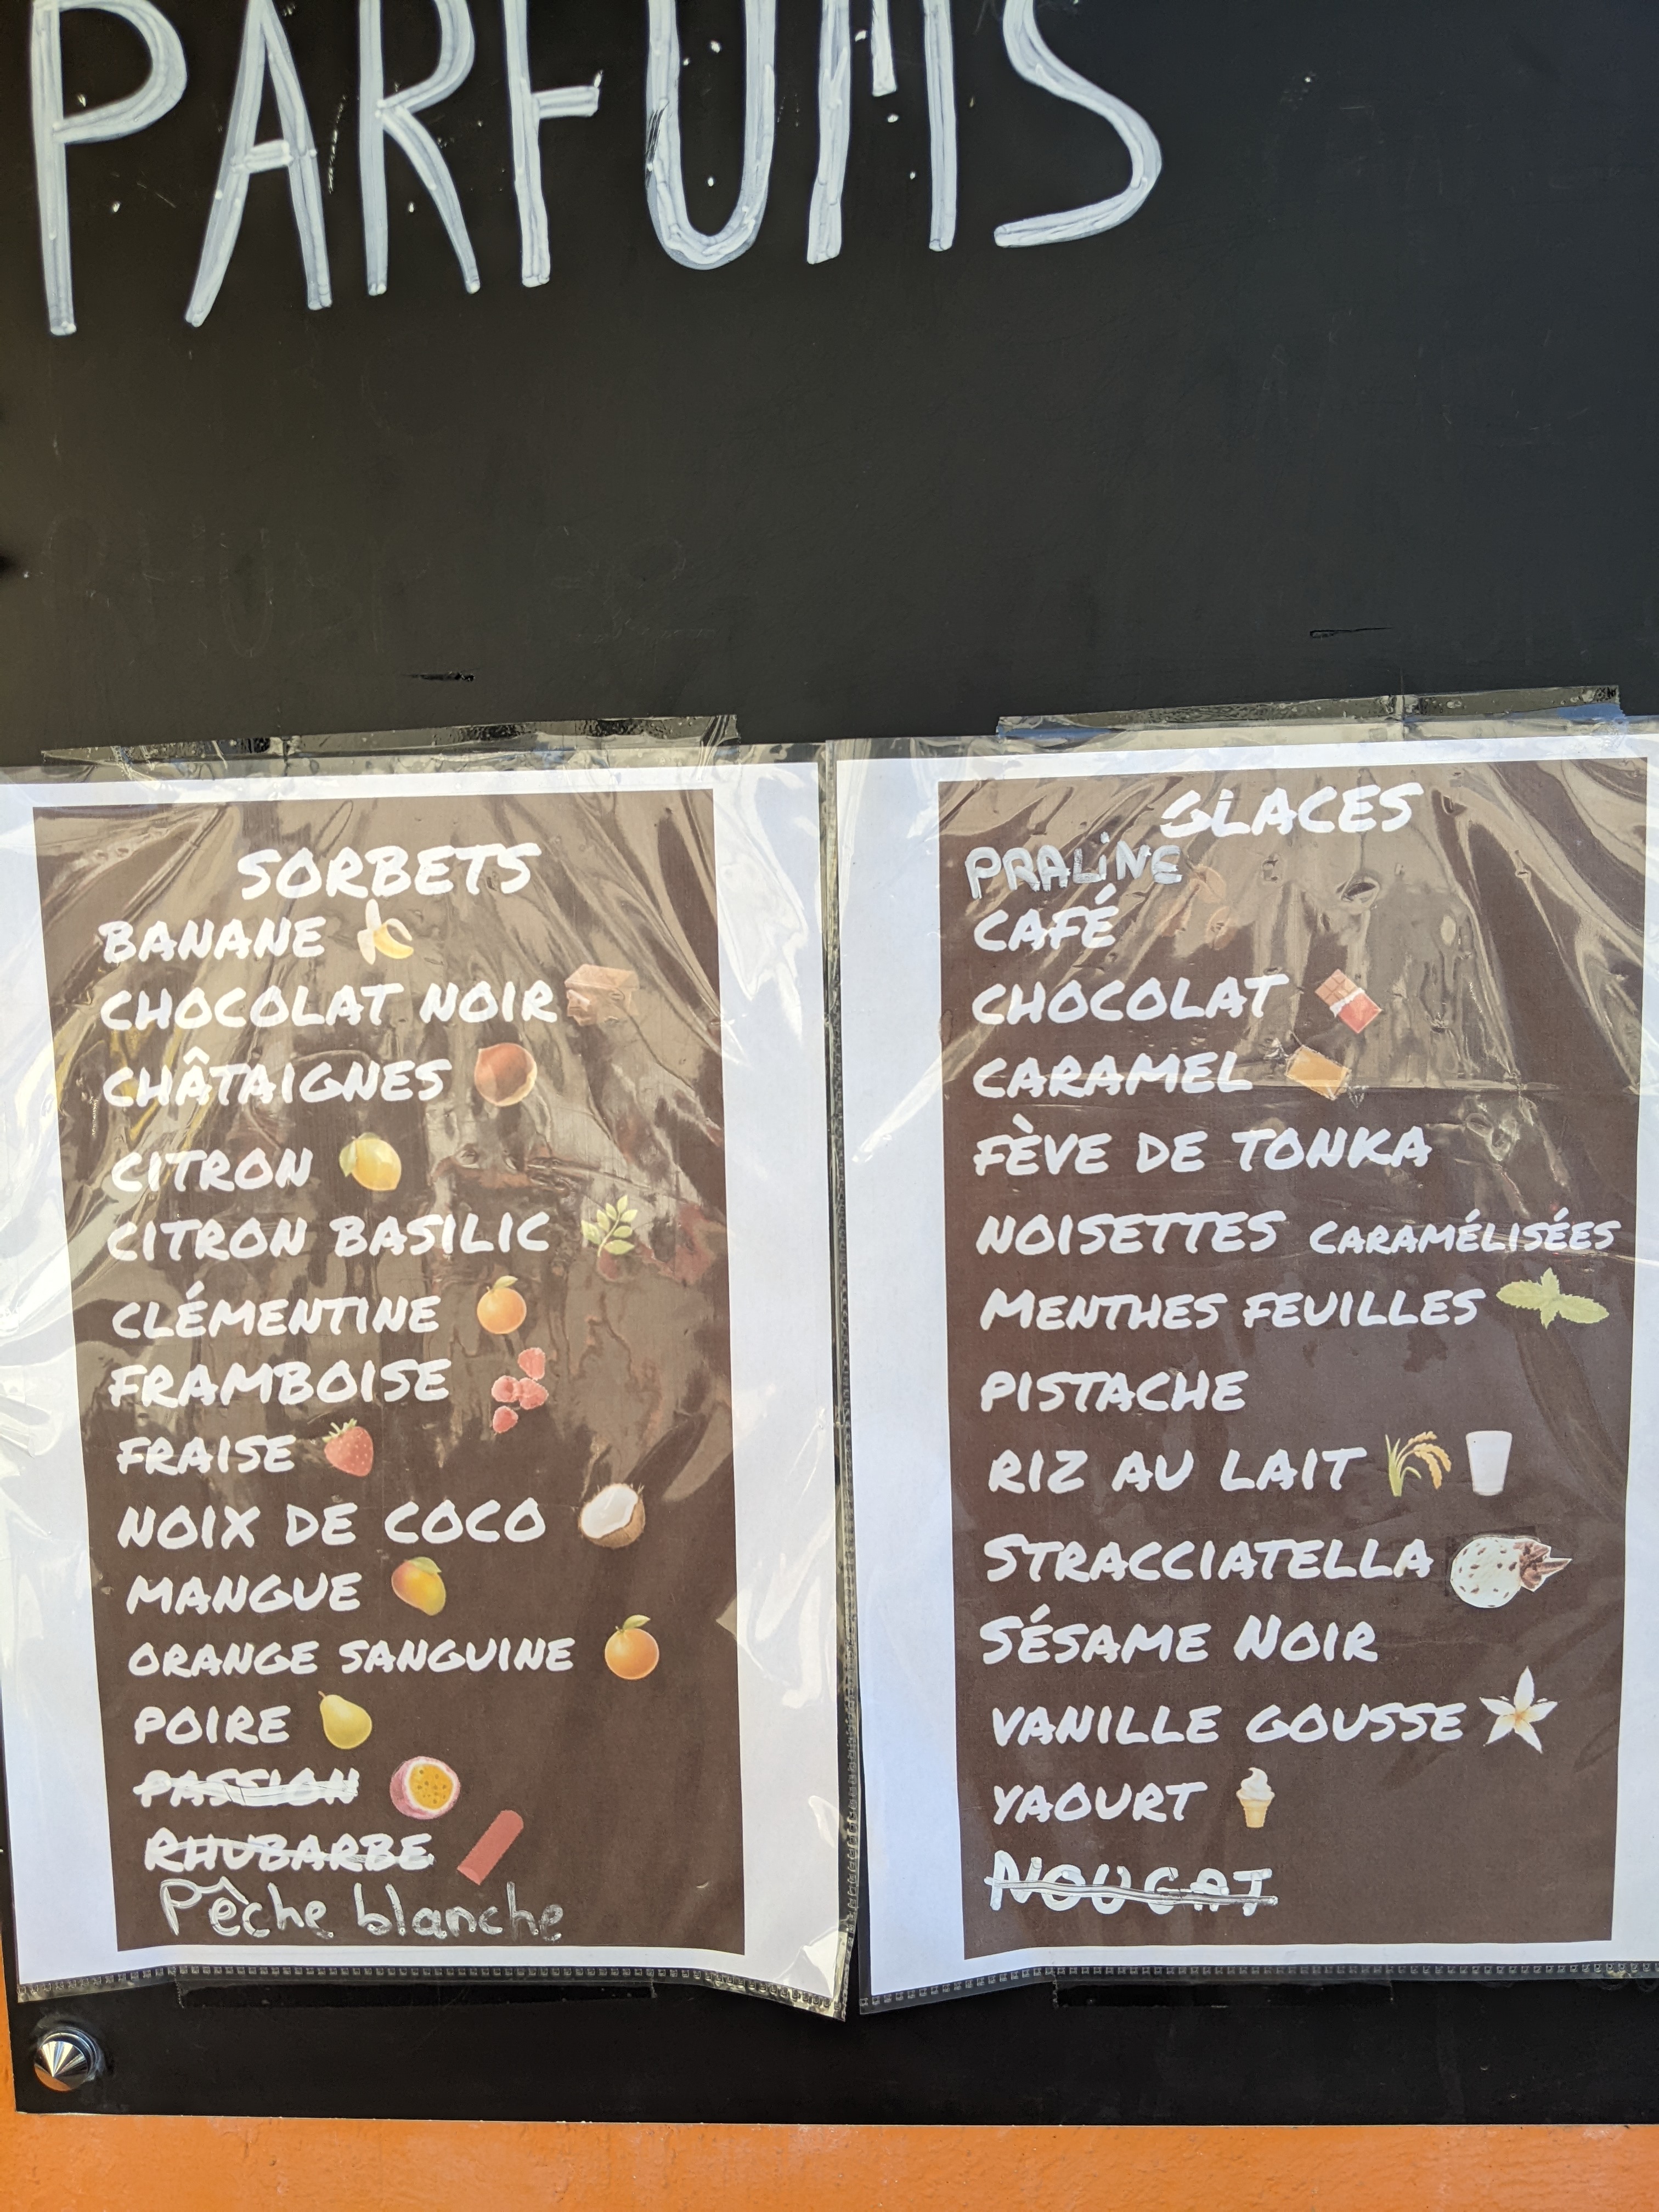 PARFUMS
SORBETS
BANANE
CHOCOLAT NOIR
CHÂTAIGNES
CITRON
CITRON BASILIC
CLÉMENTINE
FRAMBOISE
FRAISE
NOIX DE COCO
MANGUE
ORANGE SANGUINE
POIRE
PASSION
RHUBARBE
Pêche blanche
GLACES
PRALINE
CAFÉ
CHOCOLAT
CARAMEL
FÈVE DE TONKA
NOISETTES CARAMÉLISÉES
MENTHES FEUILLES
PISTACHE
RIZ AU LAIT
STRACCIATELLA
SÉSAME NOIR
VANILLE GOUSSE
YAOURT
NOUGAT